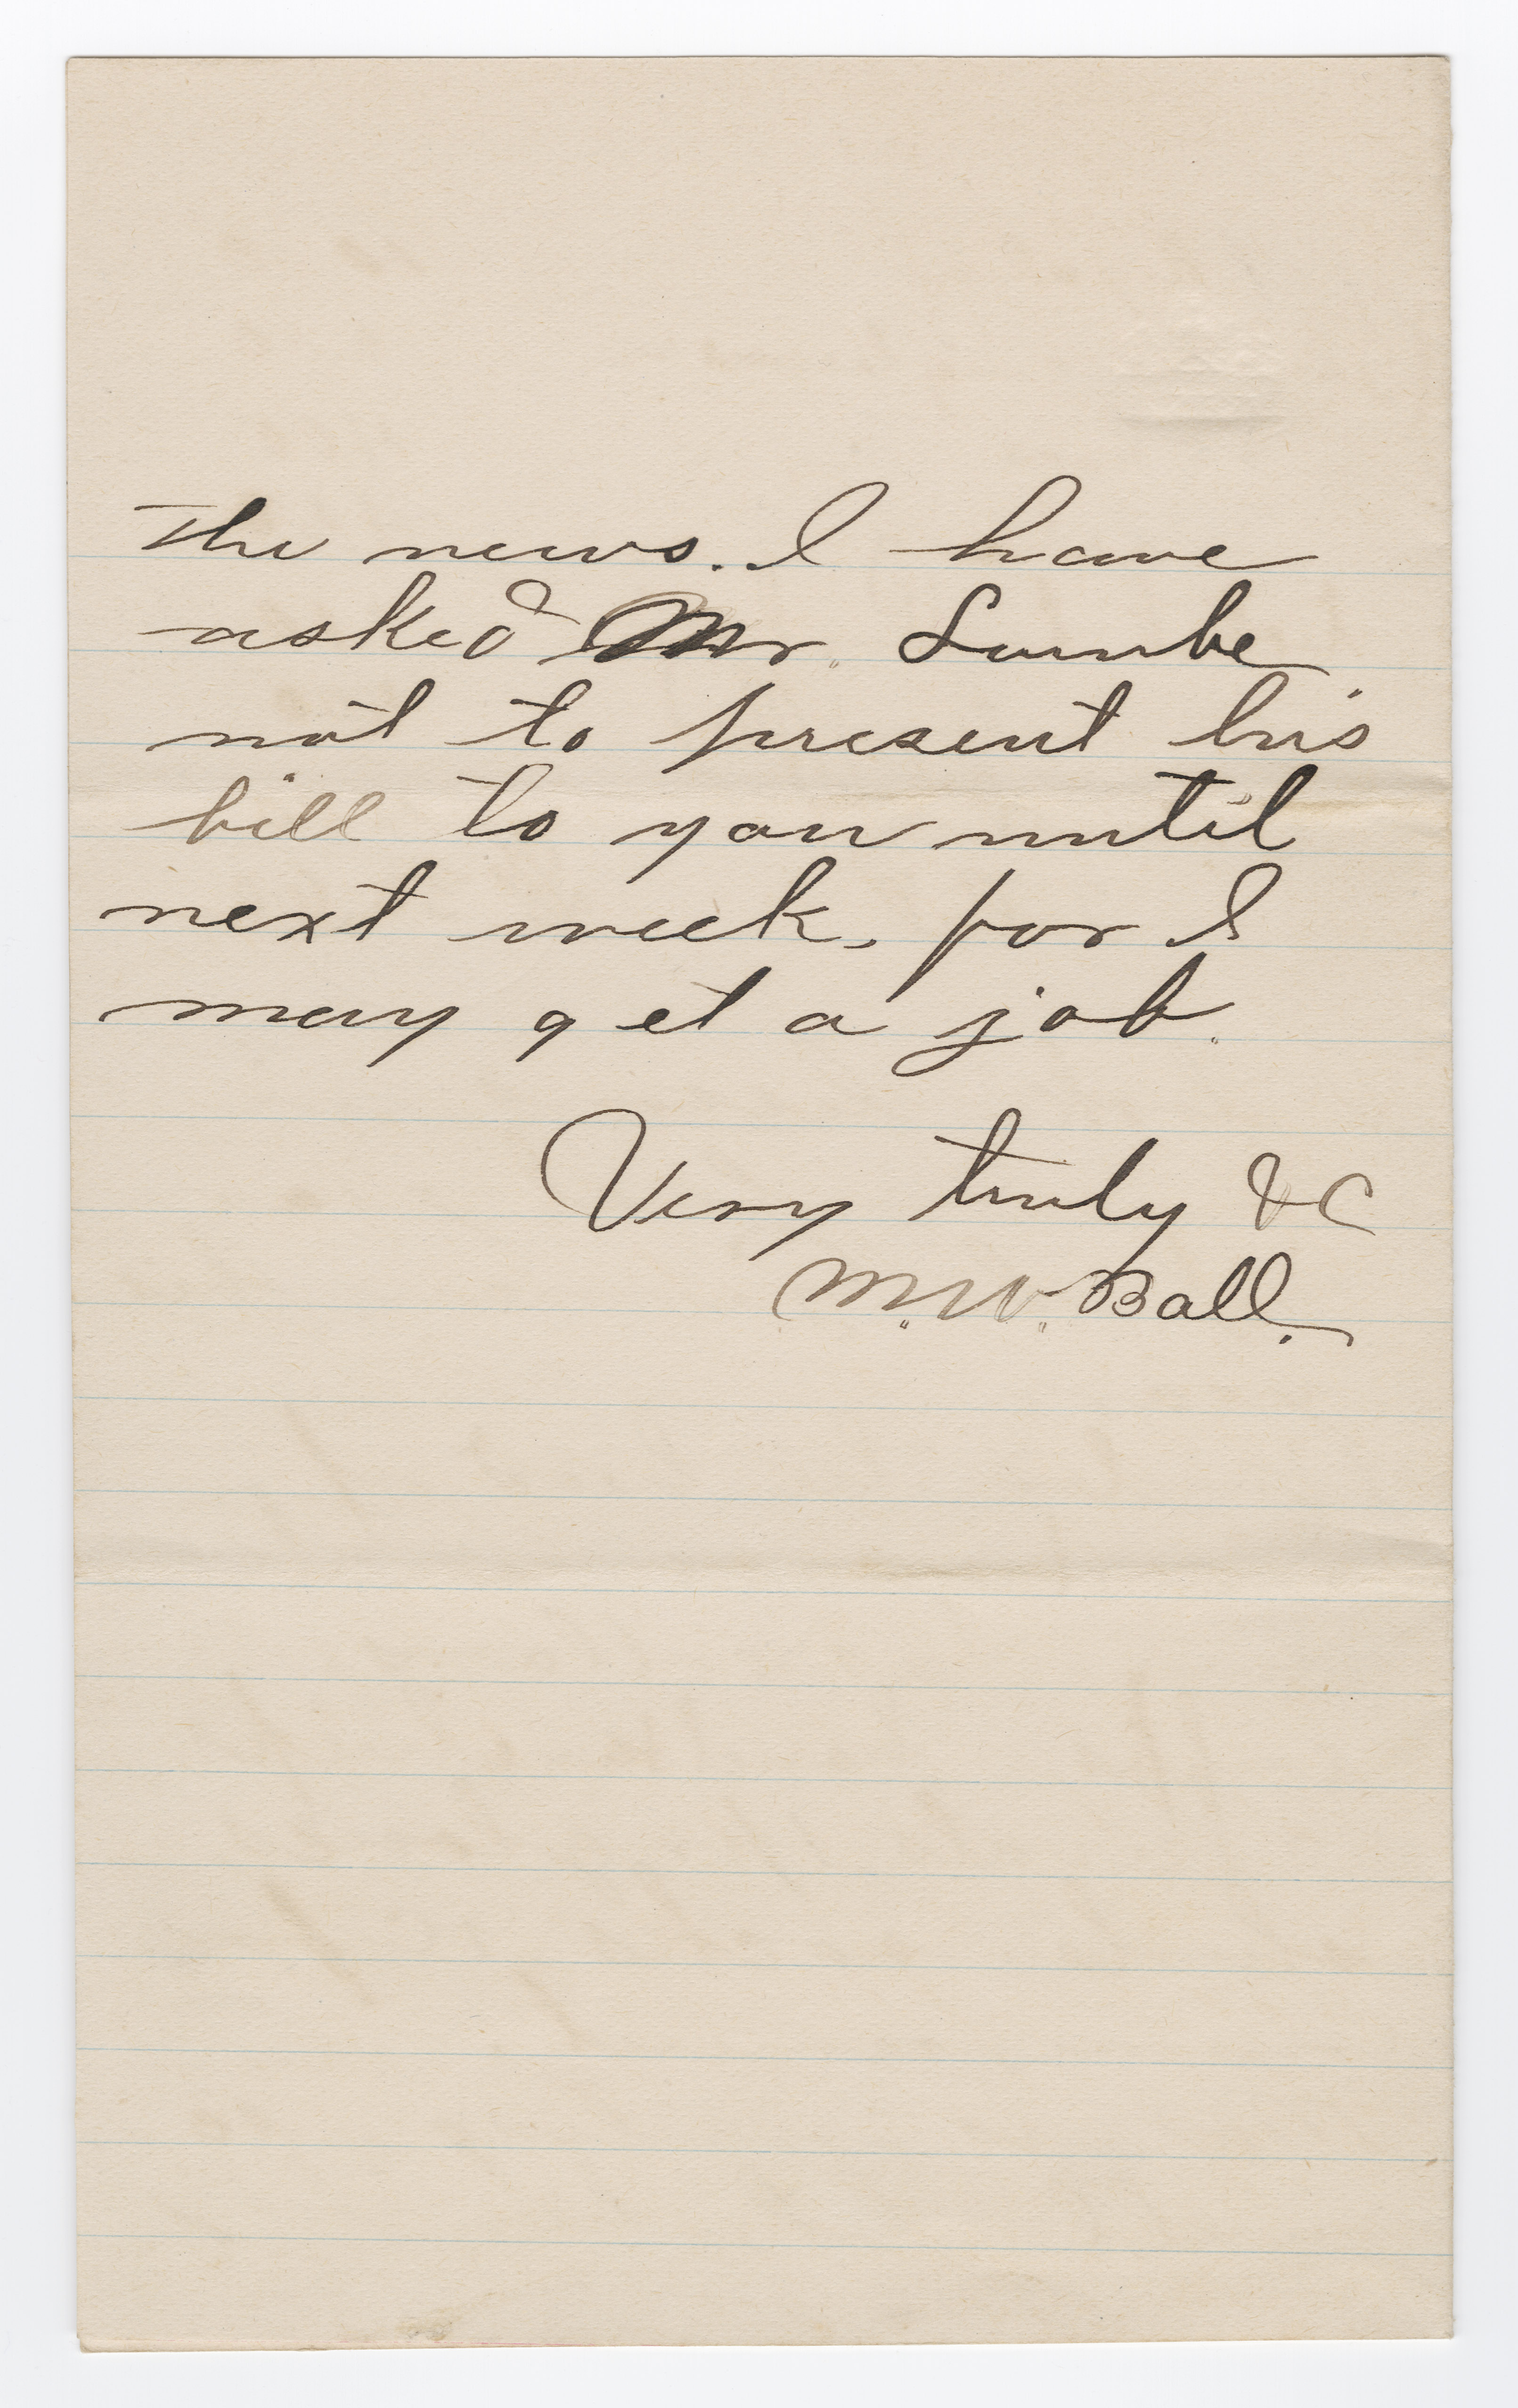 the news. I have
asked Mr. Lumbe
not to present his
bill to you until
next week, for I
may get a job.
Very truly &C
M. W. Ball.